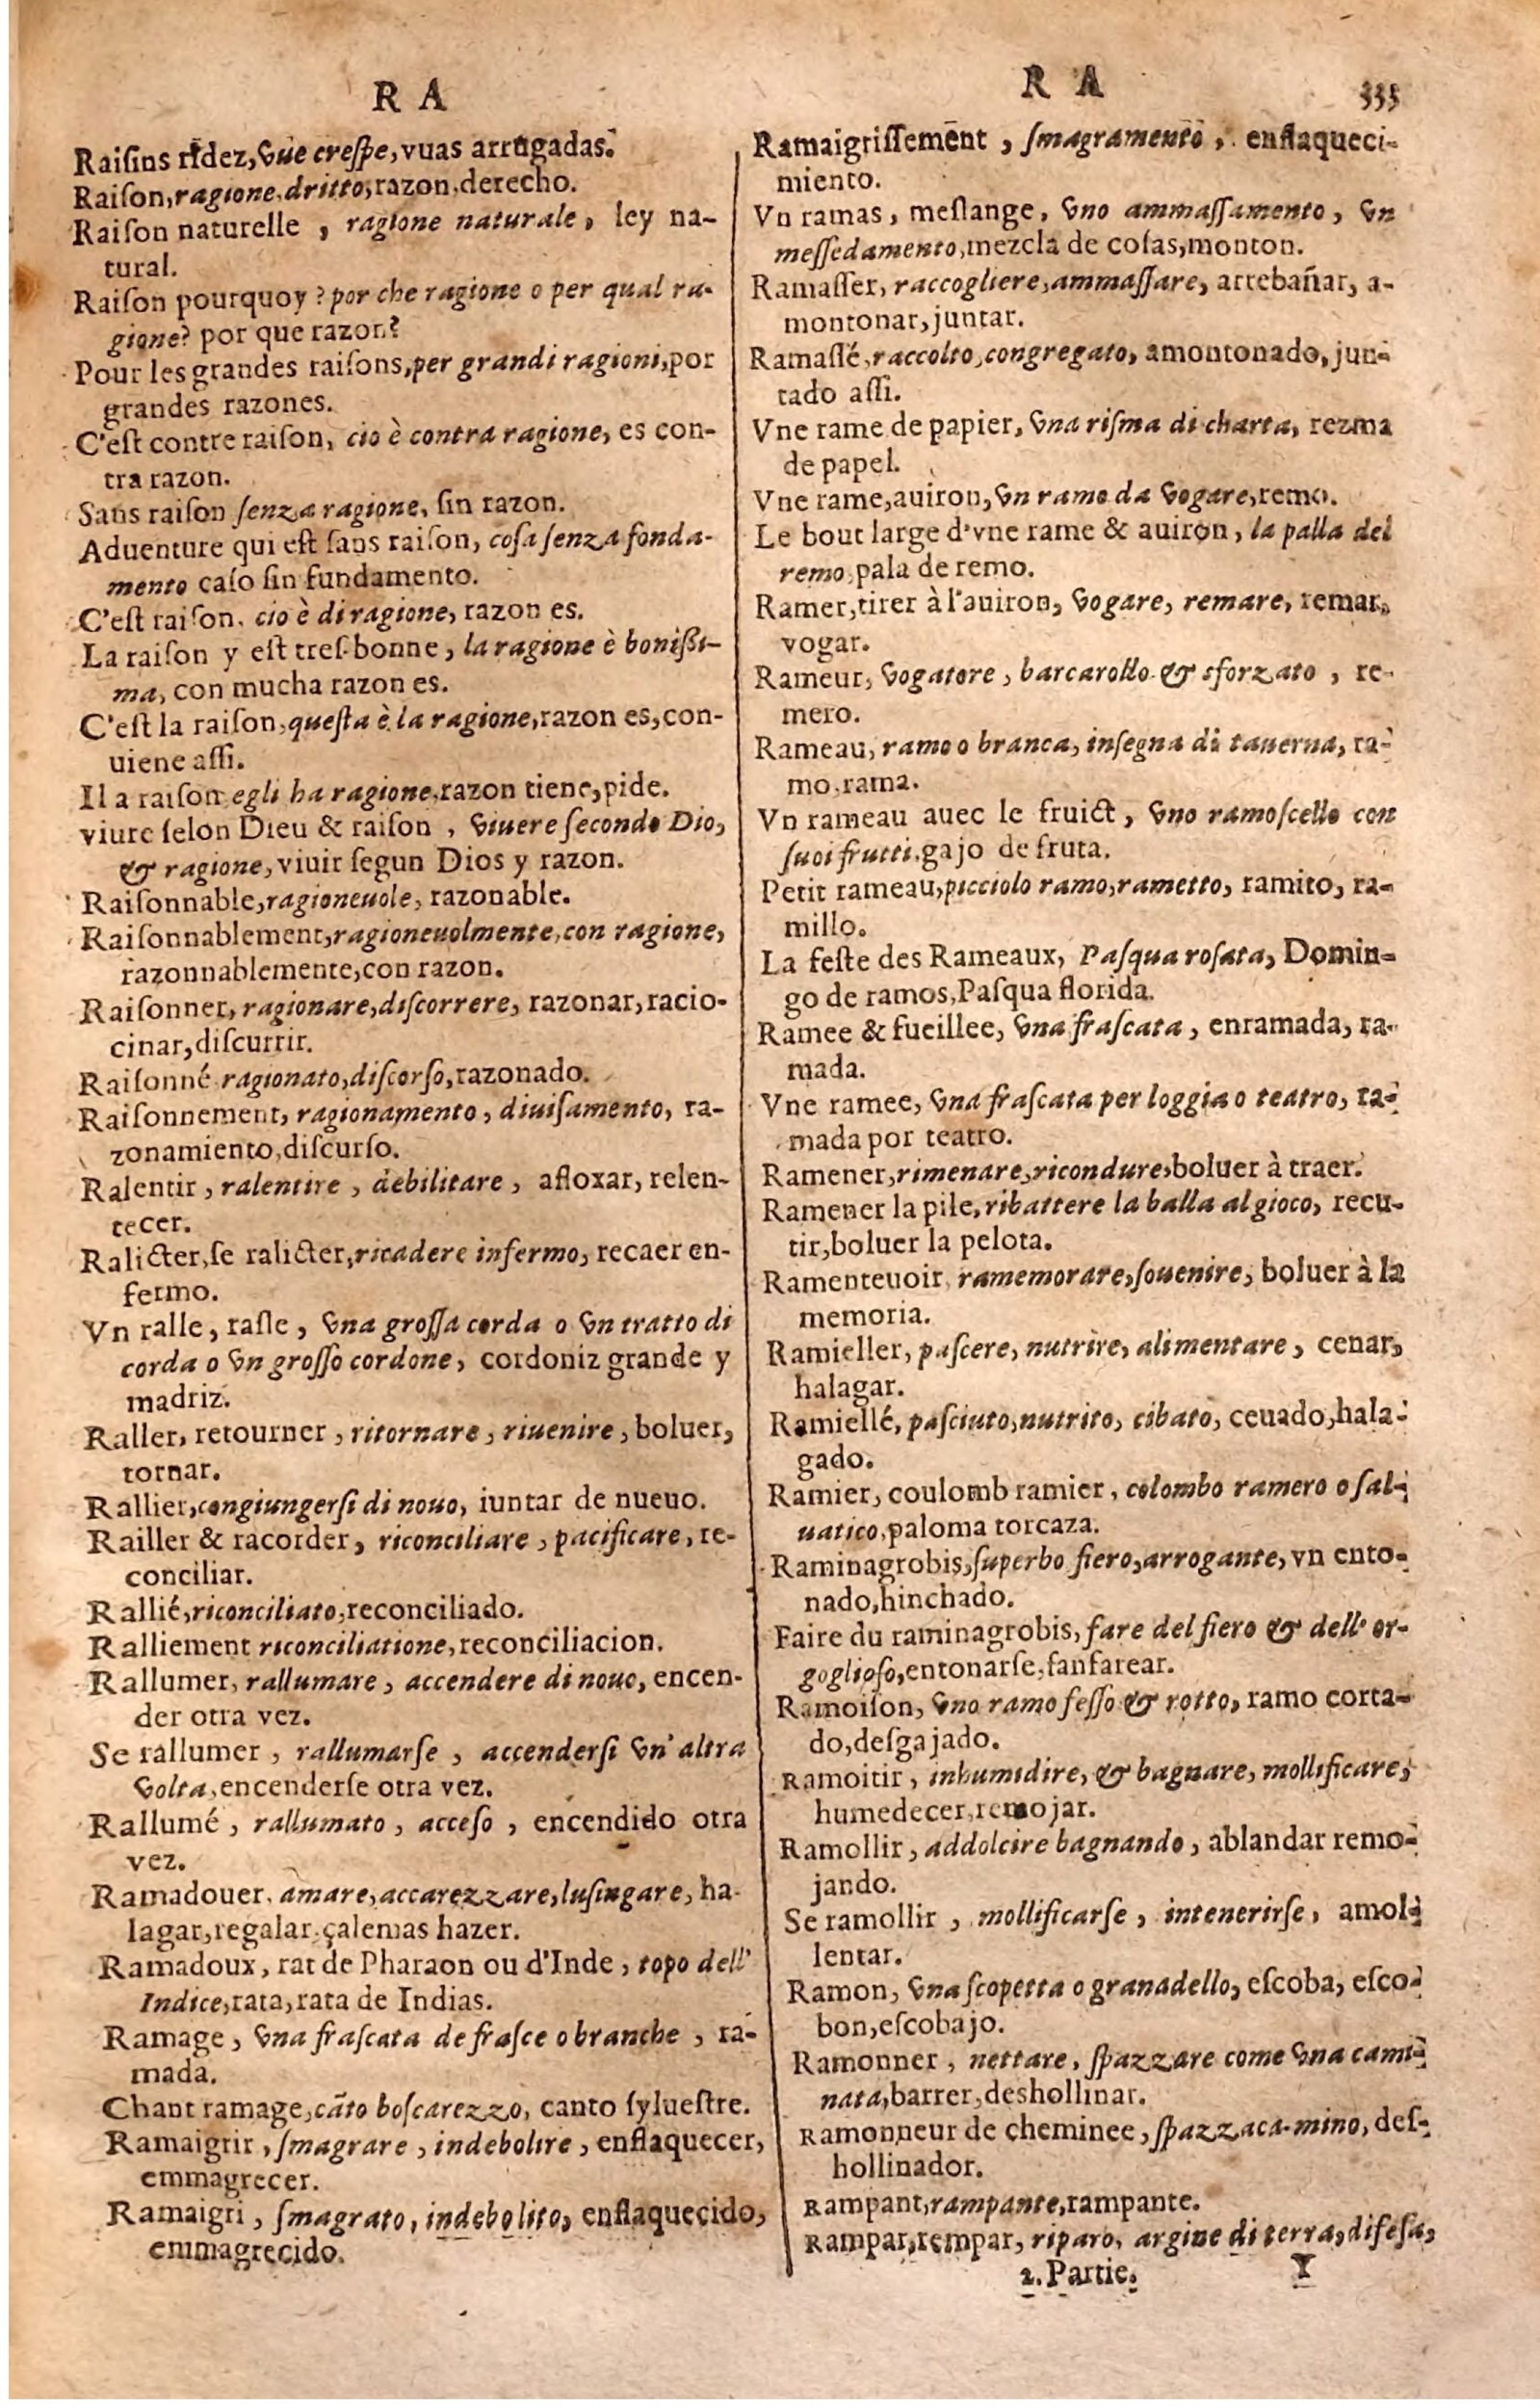 R A
Raisins ridez, vue crespe, vuas arrugadas.
Raiſon, ragione, dritto, razon, derecho.
Raiſon naturelle, ragione naturale, ley na-
tural.
Raiſon pourquoy? por che ragione o per qual ra-
gione? por que razon?
Pour les grandes raiſons, per grandi ragioni, por
grandes razones.
C'eſt contre raiſon, cio è contra ragione, es con-
tra razon.
Sans raiſon ſenza ragione, ſin razon.
Aduenture qui eſt ſans raiſon, coſa ſenza fonda-
mento caſo ſin fundamento.
C'eſt raiſon, cio è di ragione, razon es.
La raiſon y eſt treſ-bonne, la ragione è bonißi-
ma, con mucha razon es.
C'eſt la raiſon, queſta è la ragione, razon es, con-
uiene aſſi.
Il a raiſon egli ha ragione, razon tiene, pide.
viure ſelon Dieu & raiſon, viuere ſecondo Dio,
& ragione, viuir ſegun Dios y razon.
Raiſonnable, ragioneuole, razonable.
Raiſonnablement, ragioneuolmente, con ragione,
razonnablemente, con razon.
Raiſonner, ragionare, diſcorrere, razonar, racio-
cinar, diſcurrir.
Raiſonné ragionato, diſcorſo, razonado.
Raiſonnement, ragionamento, diuiſamento, ra-
zonamiento, diſcurſo.
Ralentir, ralentire, debilitare, afloxar, relen-
tecer.
Ralicter, ſe ralicter, ricadere infermo, recaer en-
fermo.
Vn ralle, raſle, vna groſſa corda o vn tratto di
corda o vn groſſo cordone, cordoniz grande y
madriz.
Raller, retourner, ritornare, riuenire, boluer,
tornar.
Rallier, congiungerſi di nouo, iuntar de nueuo.
Railler & racorder, riconciliare, pacificare, re-
conciliar.
Rallié, riconciliato, reconciliado.
Ralliement riconciliatione, reconciliacion.
Rallumer, rallumare, accendere di nouo, encen-
der otra vez.
Se rallumer, rallumarſe, accenderſi vn'altra
volta, encenderſe otra vez.
Rallumé, rallumato, acceſo, encendido otra
vez.
Ramadouer, amare, accarezzare, luſingare, ha-
lagar, regalar, çalemas hazer.
Ramadoux, rat de Pharaon ou d'Inde, topo dell'
Indice, rata, rata de Indias.
Ramage, vna fraſcata de fraſce o branche, ra-
mada.
Chant ramage, cãto boſcarezzo, canto ſylueſtre.
Ramaigrir, ſmagrare, indebolire, enflaquecer,
emmagrecer.
Ramaigri, ſmagrato, indebolito, enflaquecido,
emmagrecido.
R A 335
Ramaigriſſement, ſmagramento, enflaqueci-
miento.
Vn ramas, meſlange, vno ammaſſamento, vn
meſſedamento, mezcla de coſas, monton.
Ramaſſer, raccogliere, ammaſſare, arrebañar, a-
montonar, juntar.
Ramaſſé, raccolto, congregato, amontonado, jun-
tado aſſi.
Vne rame de papier, vna riſma di charta, rezma
de papel.
Vne rame, auiron, vn ramo da vogare, remo.
Le bout large d'vne rame & auiron, la palla del
remo, pala de remo.
Ramer, tirer à l'auiron, vogare, remare, remar,
vogar.
Rameur, vogatore, barcarollo & sforzato, re-
mero.
Rameau, ramo o branca, inſegna di tauerna, ra-
mo, rama.
Vn rameau auec le fruict, vno ramoſcello con
ſuoi frutti, gajo de fruta.
Petit rameau, picciolo ramo, rametto, ramito, ra-
millo.
La feſte des Rameaux, Paſqua roſata, Domin-
go de ramos, Paſqua florida.
Ramee & fueillee, vna fraſcata, enramada, ra-
mada.
Vne ramee, vna fraſcata per loggia o teatro, ra-
mada por teatro.
Ramener, rimenare, ricondure, boluer à traer.
Ramener la pile, ribattere la balla al gioco, recu-
tir, boluer la pelota.
Ramenteuoir, ramemorare, ſouenire, boluer à la
memoria.
Ramieller, paſcere, nutrire, alimentare, cenar,
halagar.
Ramiellé, paſciuto, nutrito, cibato, ceuado, hala-
gado.
Ramier, coulomb ramier, colombo ramero o ſal-
uatico, paloma torcaza.
Raminagrobis, ſuperbo fiero, arrogante, vn ento-
nado, hinchado.
Faire du raminagrobis, fare del fiero & dell'or-
goglioſo, entonarſe, fanfarear.
Ramoiſon, vno ramo feſſo & rotto, ramo corta-
do, deſgajado.
Ramoitir, inhumidire, & bagnare, mollificare,
humedecer, remojar.
Ramollir, addolcire bagnando, ablandar remo-
jando.
Se ramollir, mollificarſe, intenerirſe, amol-
lentar.
Ramon, vna ſcopetta o granadello, eſcoba, eſco-
bon, eſcobajo.
Ramonner, nettare, ſpazzare come vna cami-
nata, barrer, deshollinar.
Ramonneur de cheminee, ſpazzaca-mino, deſ-
hollinador.
Rampant, rampante, rampante.
Rampar, rempar, riparo, argine di terra, difeſa,
2. Partie. Y